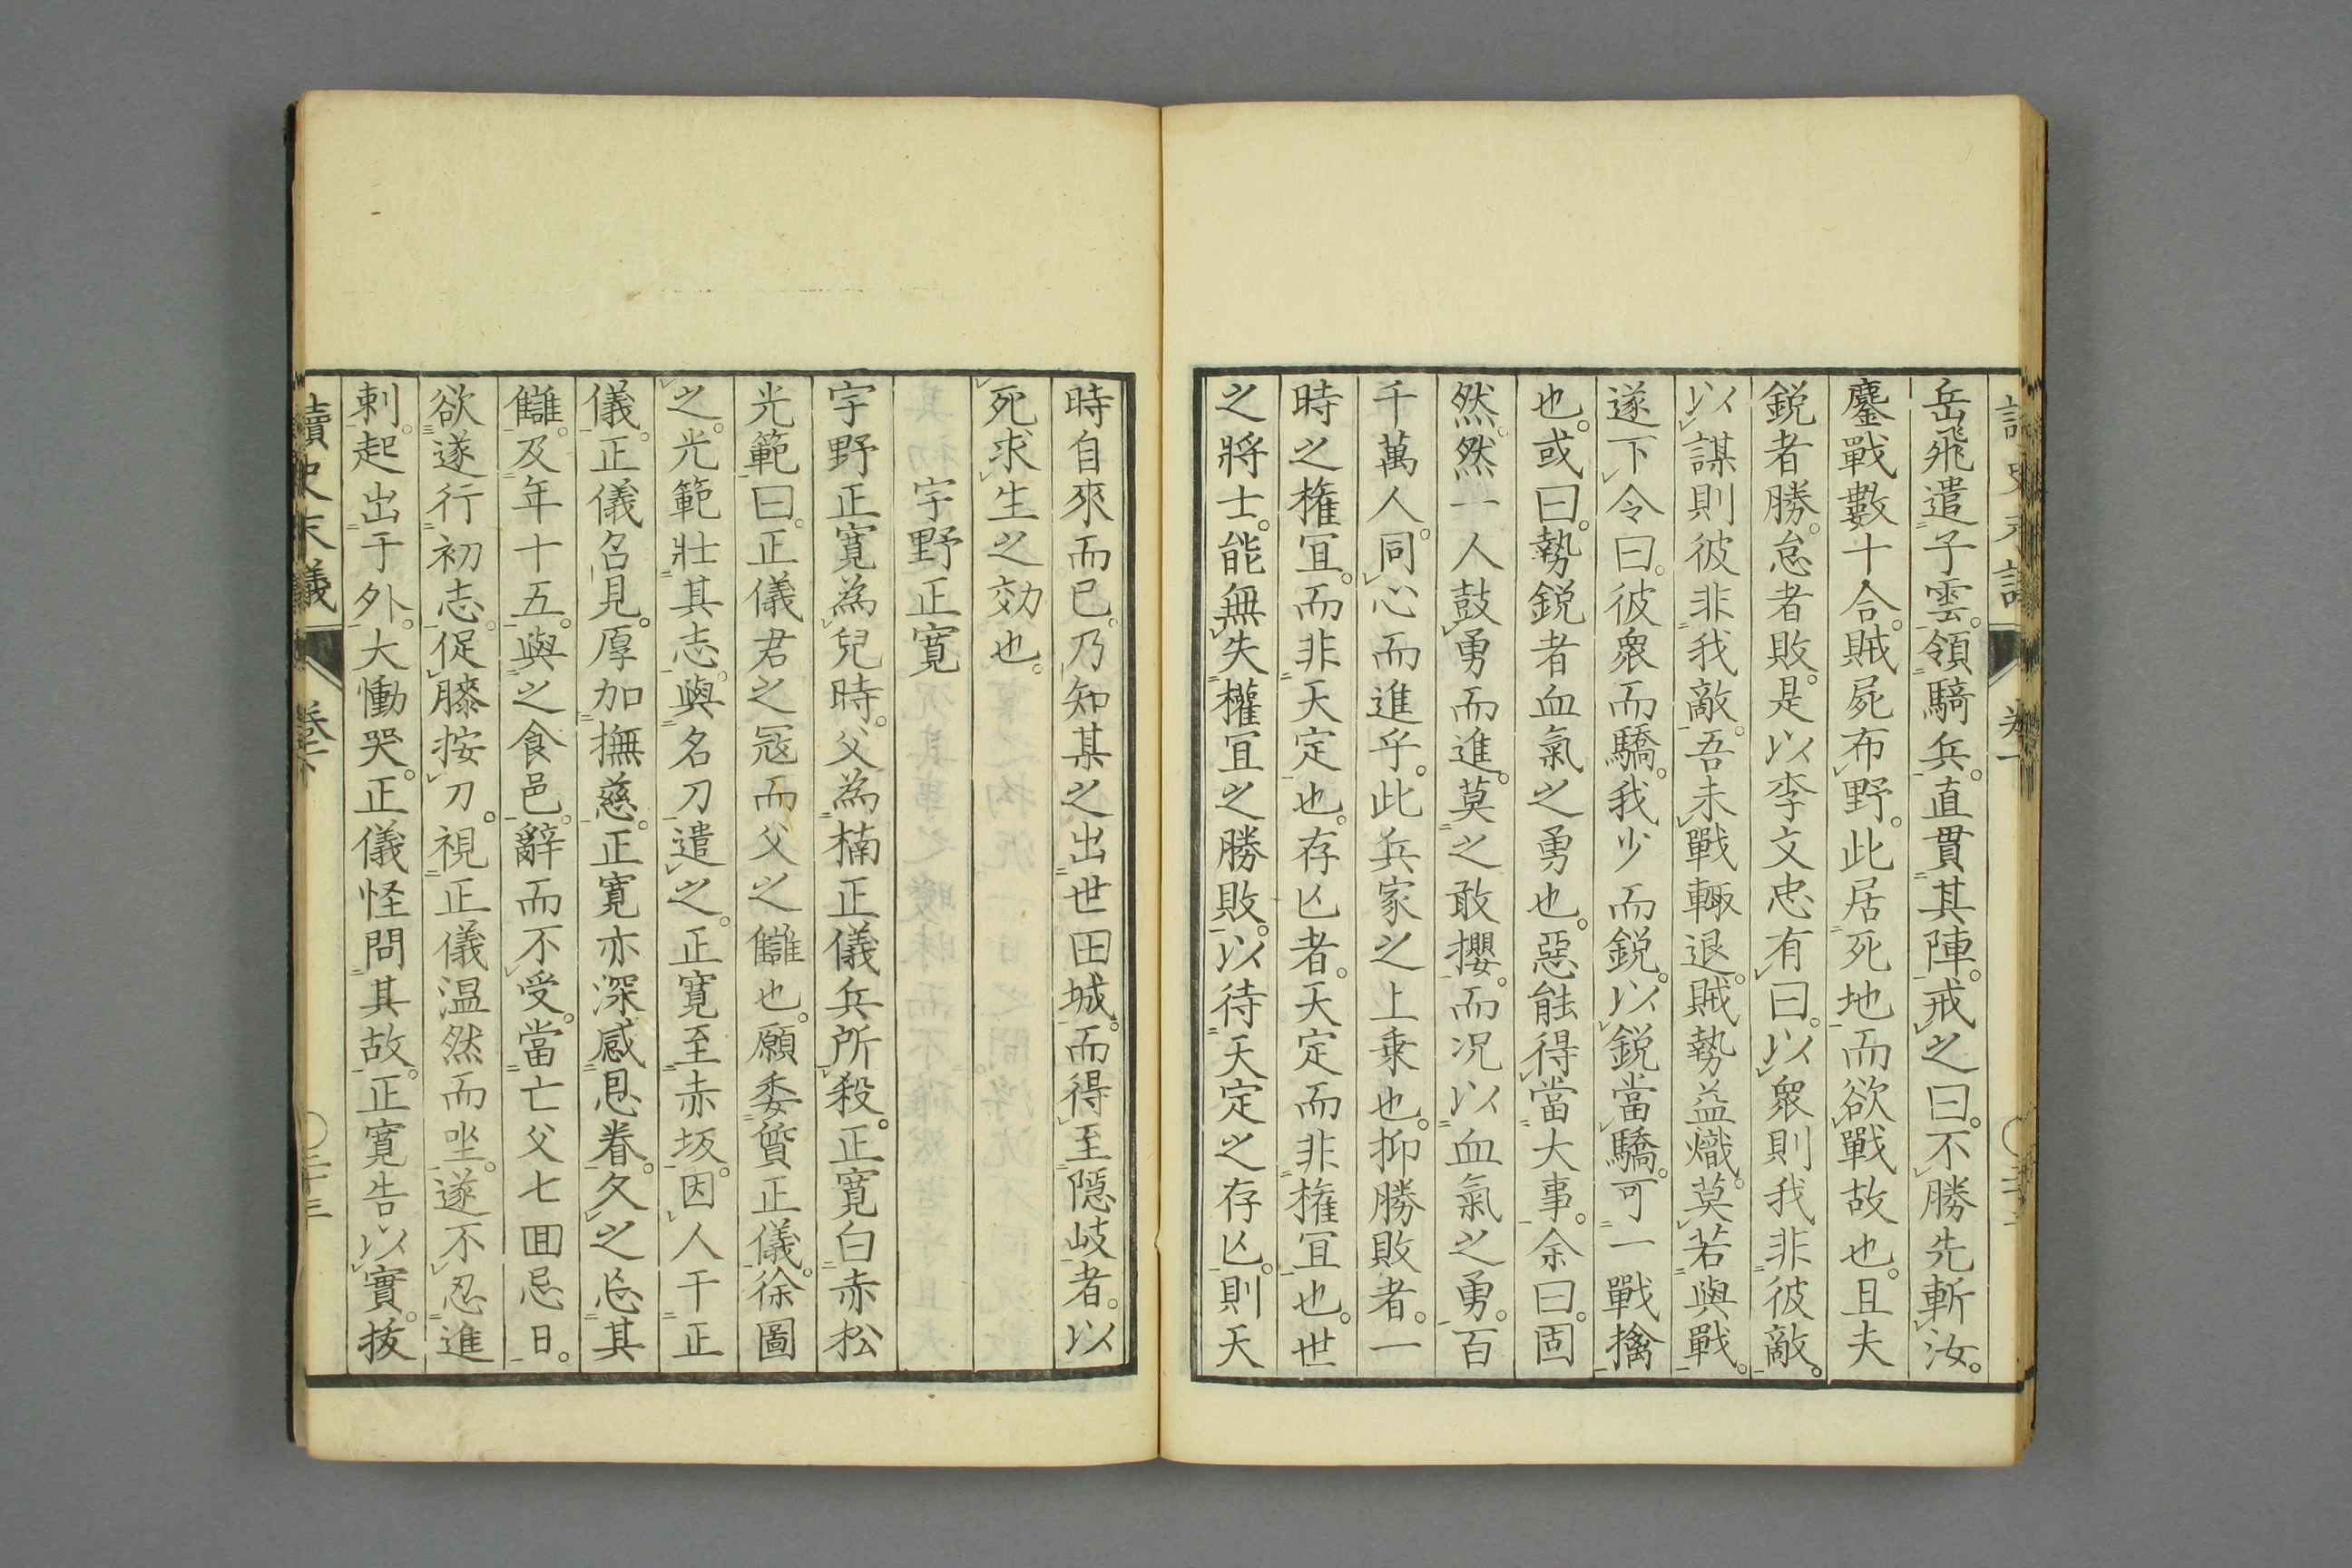 岳飛遣子雲。領騎兵。直貫其陣。戒之曰。不勝先斬汝。
鏖戰數十合。賊屍布野。此居死地而欲戰故也。且夫
鋭者勝。怠者敗。是以李文忠有曰。以衆則我非彼敵。
以謀則彼非我敵。吾未戰輙退。賊勢益熾。莫若與戰。
遂下令曰。彼衆而驕。我少而鋭。以鋭當驕。可一戰擒
也。或曰。勢鋭者血氣之勇也。惡能得當大事。余曰。固
然。然一人鼓勇而進。莫之敢攖。而况以血氣之勇。百
千萬人。同心而進乎。此兵家之上乘也。抑勝敗者。一
時之権宜。而非天定也。存亾者。天定而非権宜也。世
之將士。能無失權宜之勝敗。以待天定之存亾。則天
時自來而已。乃知某之出世田城。而得至隠岐者。以
死求生之効也。
宇野正寛
宇野正寛為兒時。父為楠正儀兵所殺。正寛白赤松
光範曰。正儀君之冦而父之讎也。願委質正儀。徐圖
之。光範壯其志。與名刀遣之。正寛至赤坂。因人干正
儀。正儀召見。厚加撫慈。正寛亦深感恩眷。久之忘其
讎。及年十五。與之食邑。辭而不受。當亡父七囬忌日。
欲遂行初志。促膝按刀。視正儀温然而坐。遂不忍進
刺。起出于外。大慟哭。正儀怪問其故。正寛告以實。抜
讀史末議